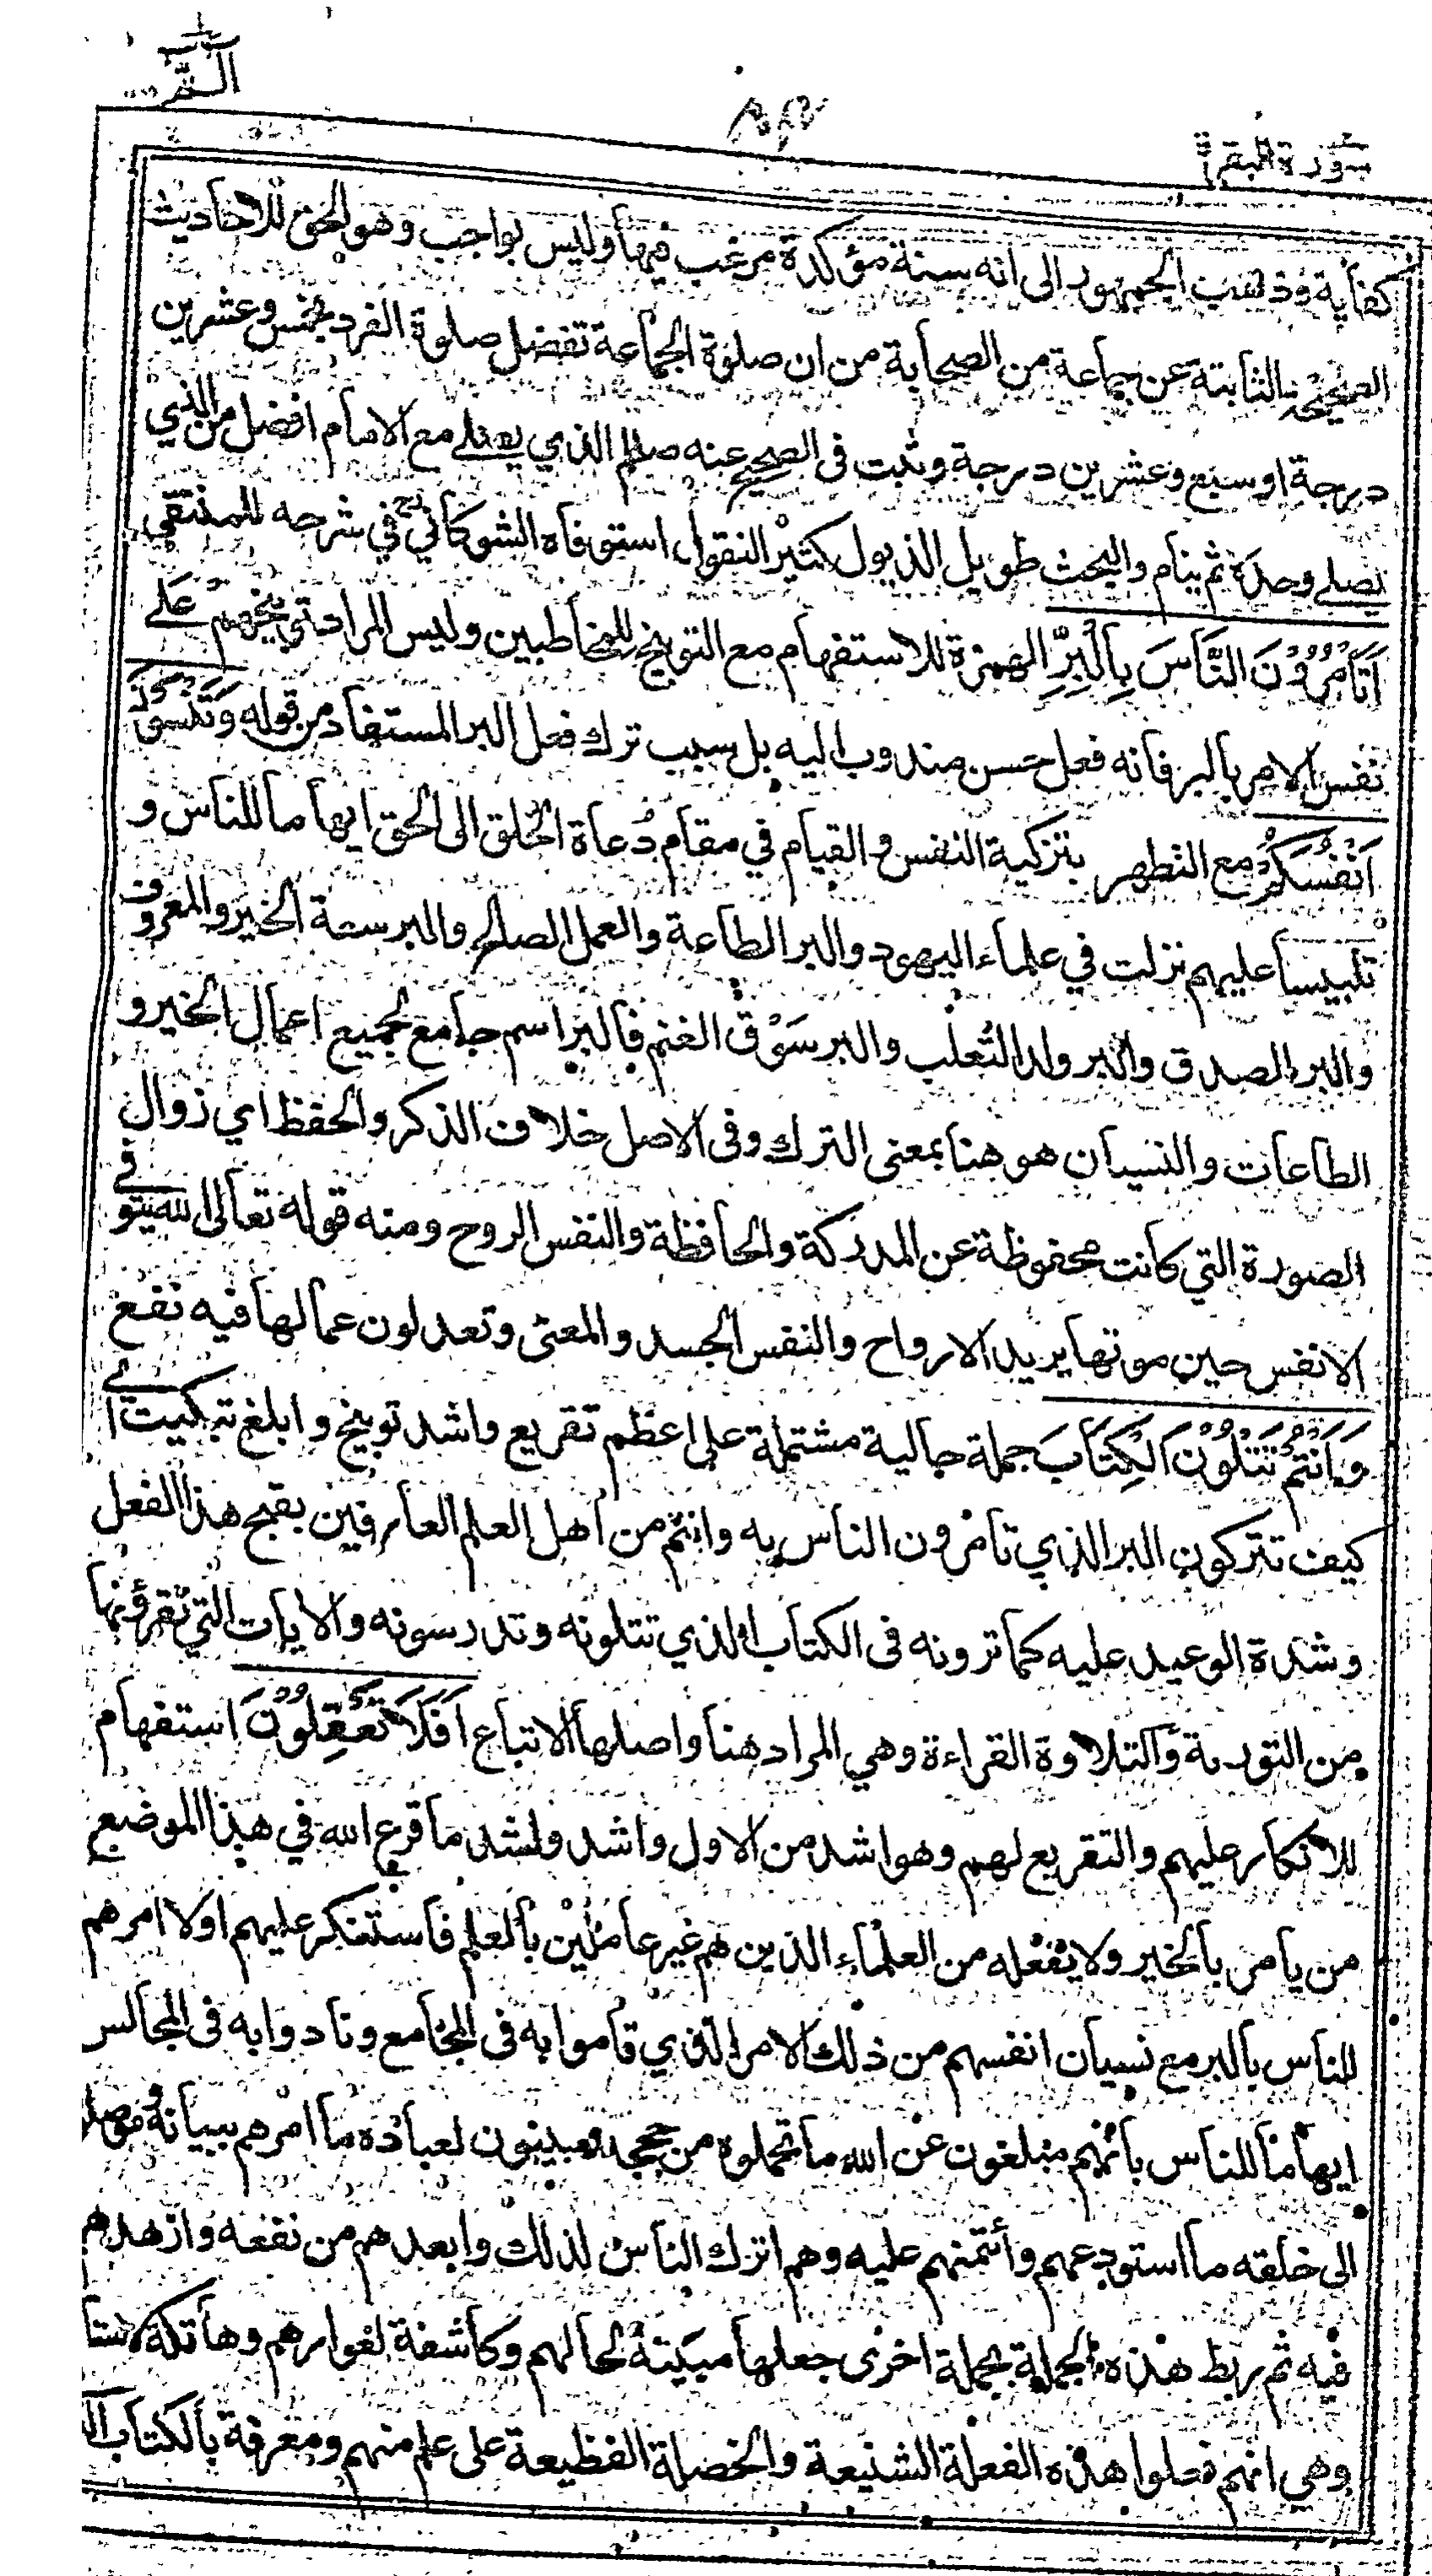 سورة البقرة
كفاية وذهب الجمهور الى انه سنة مؤكدة مرغب فيها وليس بواجب وهو الحق للاحاديث
الصحيحة الثابتة عن جماعة من الصحابة من ان صلوة الجماعة تفضل صلوة الفرد بخمس وعشرين
درجة او سبع وعشرين درجة وثبت فى الصحيح عنه صللم الذي يصلے مع الامام افضل من الذي
يصلے وحده ثم ينام والبحث طويل الذيول كثير النقول استوفاه الشوكاني رح في شرحه للمنتقى
اَتَأْمُرُوْنَ النَّاسَ بِالْبِرِّ الهمزة للاستفهام مع التوبيخ للمخاطبين وليس المراد توبيخهم علے
نفس الامر بالبر فانه فعل حسن مندوب اليه بل سبب ترك فعل البر المستفاد من قوله وَتَنْسَوْنَ
اَنْفُسَكُمْ مع التطهر بتزكية النفس والقيام في مقام دُعاة الخلق الى الحق ايهاما للناس و
تلبيسا عليهم نزلت في علماء اليهود والبر الطاعة والعمل الصالح والبر سعة الخير والمعروف
والبر الصدق والبر ولد الثعلب والبر سَوْق الغنم فالبر اسم جامع لجميع اعمال الخير و
الطاعات والنسيان هو هنا بمعنى الترك وفى الاصل خلاف الذكر والحفظ اي زوال
الصورة التي كانت محفوظة عن المدركة والحافظة والنفس الروح ومنه قوله تعالى الله يتوفے
الانفس حين موتها يريد الارواح والنفس الجسد والمعنى وتعدلون عما لها فيه نفع
وَاَنْتُمْ تَتْلُوْنَ الْكِتَابَ جملة حالية مشتملة على اعظم تقريع واشد توبيخ وابلغ تبكيت اي
كيف تتركون البر الذي تامرون الناس به وانتم من اهل العلم العارفين بقبح هذا الفعل
وشدة الوعيد عليه كما ترونه فى الكتاب الذي تتلونه وتدرسونه والايات التي تقرؤنها
من التورىة والتلاوة القراءة وهي المراد هنا واصلها الاتباع اَفَلَا تَعْقِلُوْنَ استفهام
للانكار عليهم والتقريع لهم وهو اشد من الاول واشد ولشد ما قرع الله في هذا الموضع
من يامر بالخير ولا يفعله من العلماء الذين هم غير عاملين بالعلم فاستنكر عليهم اولا امرهم
للناس بالبر مع نسيان انفسهم من ذلك الامر الذي قاموا به فى المجامع ونادوا به فى المجالس
ايهاما للناس بانهم مبلغون عن الله ما تحملوه من حججه ومبينون لعباده ما امرهم ببيانه
الى خلقه ما استودعهم وأئتمنهم عليه وهم اترك الناس لذلك وابعدهم من نفعه وازهدهم
فيه ثم ربط هذه الجملة بجملة اخرى جعلها مبينة لحالهم وكاشفة لعوارهم وهاتكة
وهي انهم فعلوا هذه الفعلة الشنيعة والخصلة الفظيعة على علم منهم ومعرفة بالكتاب